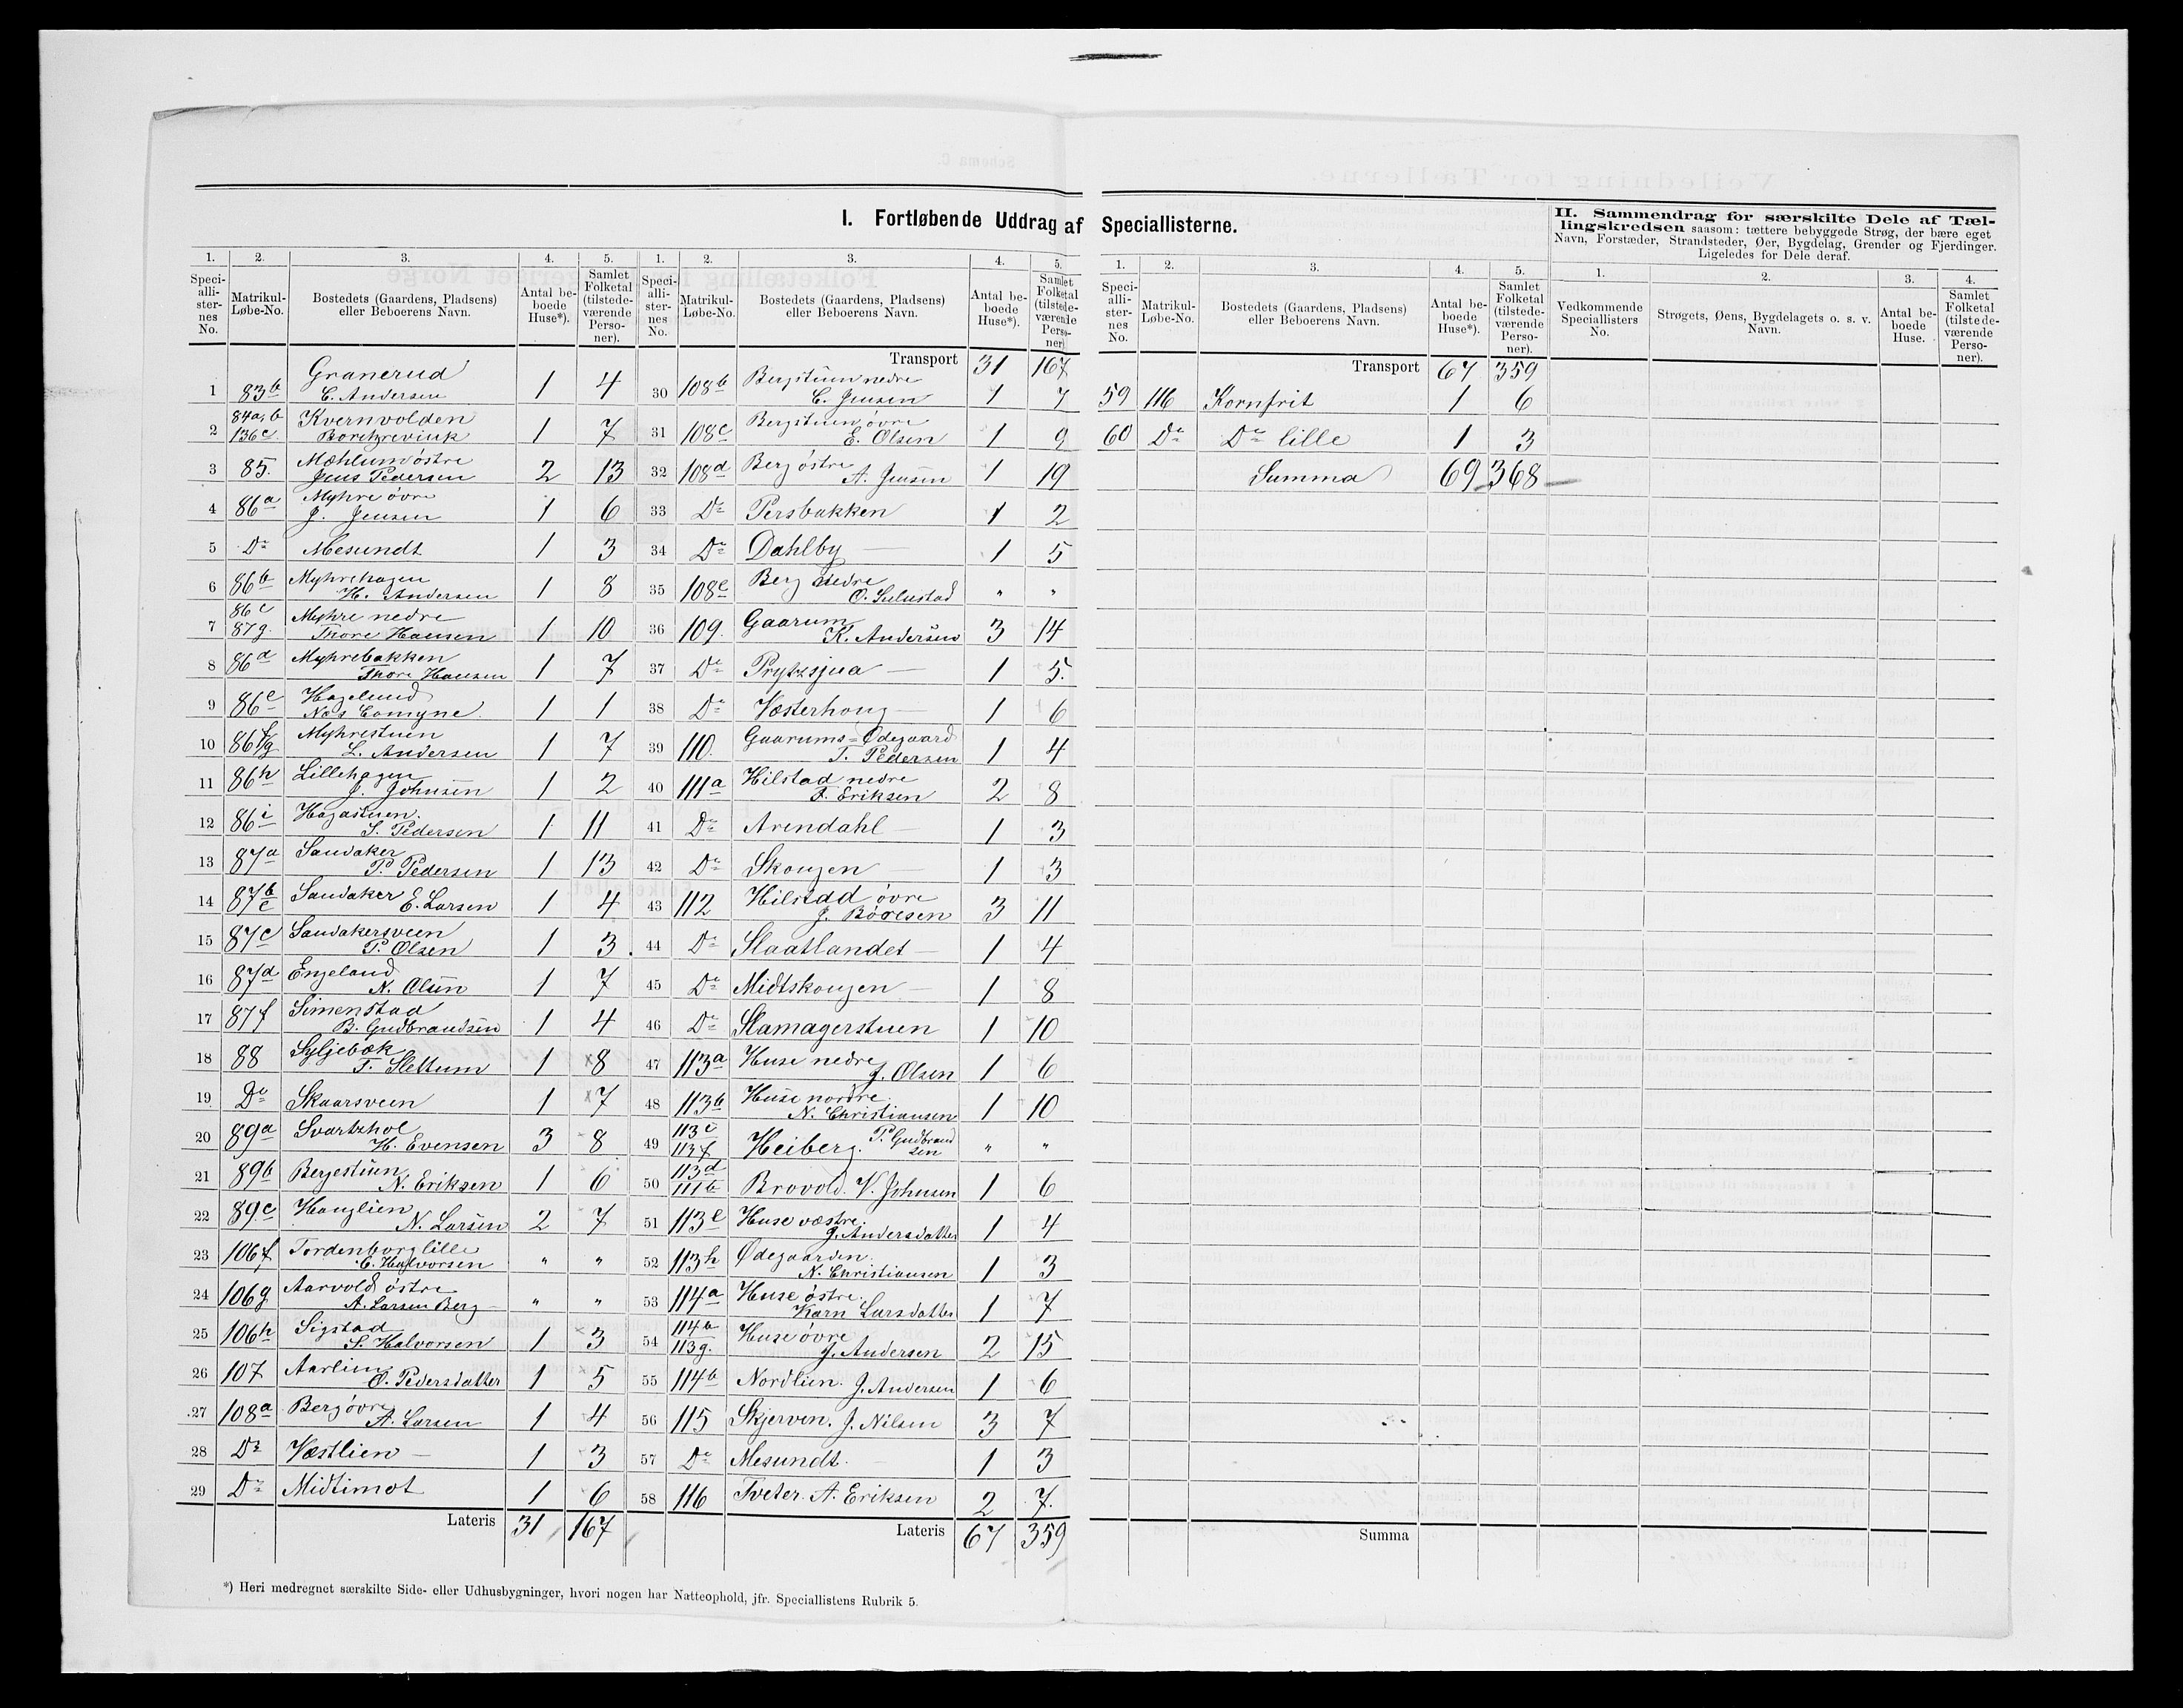 I. Fortløbende Uddrag af Speciallisterne.
II. Sammendrag for særskilte Dele af Tæl-
lingskredsen saasom: tættere bebyggede Strøg, der bære eget
Navn, Forstæder, Strandsteder, Øer, Bygdelag, Grender og Fjerdinger.
Ligeledes for Dele deraf.
1. 2. 3. 4. 5.
Speciallisternes No. Matrikul-Løbe-No. Bostedets (Gaardens, Pladsens) eller Beboerens Navn. Antal beboede Huse*). Samlet Folketal (tilstedeværende Personer).
1 83b Granerud E. Andersen 1 4
2 84a,b 136c Kvernvolden 1 7
3 85. Mæhlum østre Jens Pedersen 2 13
4 86a Myhre øvre J. Jensen 1 6
5 Do Mesundt 1 3
6 86b Myhrehagen H. Andersen 1 8
7 86c 87g. Myhre nedre Thore Hansen 1 10
8 86d Myhrebakken Thore Hansen 1 7
9 86e Hagelund Næs Comyne 1 1
10 86f/g Myhrestuen L. Andersen 1 7
11 86h Lillehagen J. Johnsen 1 2
12 86i Hagastuen. S. Pedersen 1 11
13 87a Sandaker P. Pedersen 1 13
14 87b e Sandaker E. Larsen 1 4
15 87c Sandakersveen P. Olsen 1 3
16 87d Engeland N. Olsen 1 7
17 87f Simenstad B. Gudbrandsen 1 4
18 88 Syljebæk T. Slettum 1 8
19 Do Skaarsveen 1 7
20 89a Svartshol H. Evensen 3 8
21 89b Bergestuen N. Eriksen 1 6
22 89c Hauglien N. Larsen 2 7
23 106f Tordenborg lille C. Halvorsen " "
24 106g Aarvold østre A. Larsen Berg " "
25 106h Sigstad S. Halvorsen 1 3
26 107 Aarlien O. Pedersdatter 1 5
27 108a Berg øvre A. Larsen 1 4
28 Do Væstlien 1 3
29 Do Midtimot 1 6
Lateris 31 167
1. 2. 3. 4. 5.
Speciallisternes No. Matrikul-Løbe-No. Bostedets (Gaardens, Pladsens) eller Beboerens Navn. Antal beboede Huse*). Samlet Folketal (tilstedeværende Personer)
Transport 31 167
30 108b Bergstuen nedre C. Jensen 1 7
31 108c Bergstuen øvre E. Olsen 1 9
32 108d Berg østre A. Jensen 1 19
33 Do Persbakken 1 2
34 Do Dahlby 1 5
35 108e Berg nedre O. " "
36 109. Gaarum K. Andersen 3 14
37 Do Prytzsjua 1 5.
38 Do Væsterhoug 1 6
39 110. Gaarums=Ødegaard T. Pedersen 1 4
40 111a Hilstad nedre F. Eriksen 2 8
41 Do Arendahl 1 3
42 Do Skougen 1 3
43 112 Hilstad øvre J. Børresen 3 11
44 Do Slaatlandet 1 4
45 Do Midtskougen 1 8
46 Do Slamagerstuen 1 10
47 113a Huse nedre J. Olsen 1 6
48 113b Huse nordre N. Christiansen 1 10
49 113c 113f Heiberg. P. Gudbrandsen " "
50 113d 111b Brovold. V. Johnsen 1 6
51 113e Huse væstre. J. Andersdatter 1 4
52 113h Ødegaarden. N. Christiansen 1 3
53 114a Huse østre. Karn Larsdatter 1 7
54 114b 113g. Huse øvre J. Andersen 2 15
55 114b Nordlien. J. Andersen 1 6
56 115 Skjerven. J. Nilsen 3 7
57 Do Mesundt. 1 3
58 116 Tveter. A. Eriksen 2 7.
Lateris 67 359
1. 2. 3. 4. 5.
Speciallisternes No. Matrikul-Løbe-No. Bostedets (Gaardens, Pladsens) eller Beboerens Navn. Antal beboede Huse*). Samlet Folketal (tilstedeværende Personer).
Transport 67 359
59 116 Kornfrit 1 6
60 Do Do lille 1 3
Summa 69 368
Summa
1. 2. 3. 4.
Vedkommende Speciallisters No. Strøgets, Øens, Bygdelagets o. s. v. Navn. Antal beboede Huse. Samlet Folketal (tilstedeværende Personer).
*) Heri medregnet særskilte Side- eller Udhusbygninger, hvori nogen har Natteophold, jfr. Speciallistens Rubrik 5.